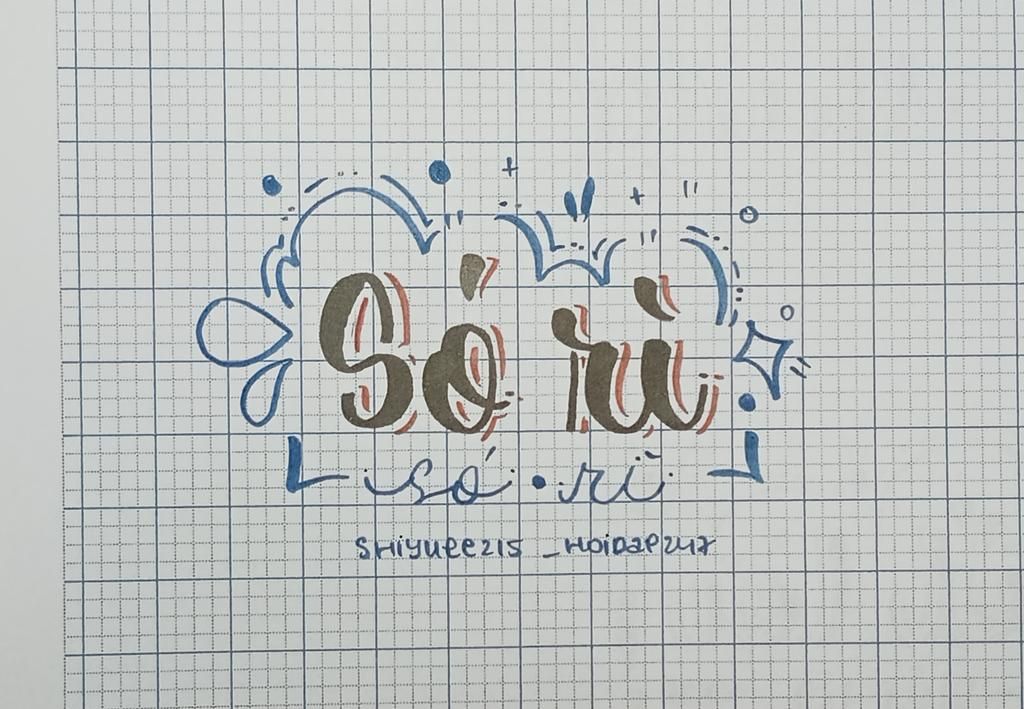 Só rì
só • rì
SHiyuPee215 _HoiDaP247